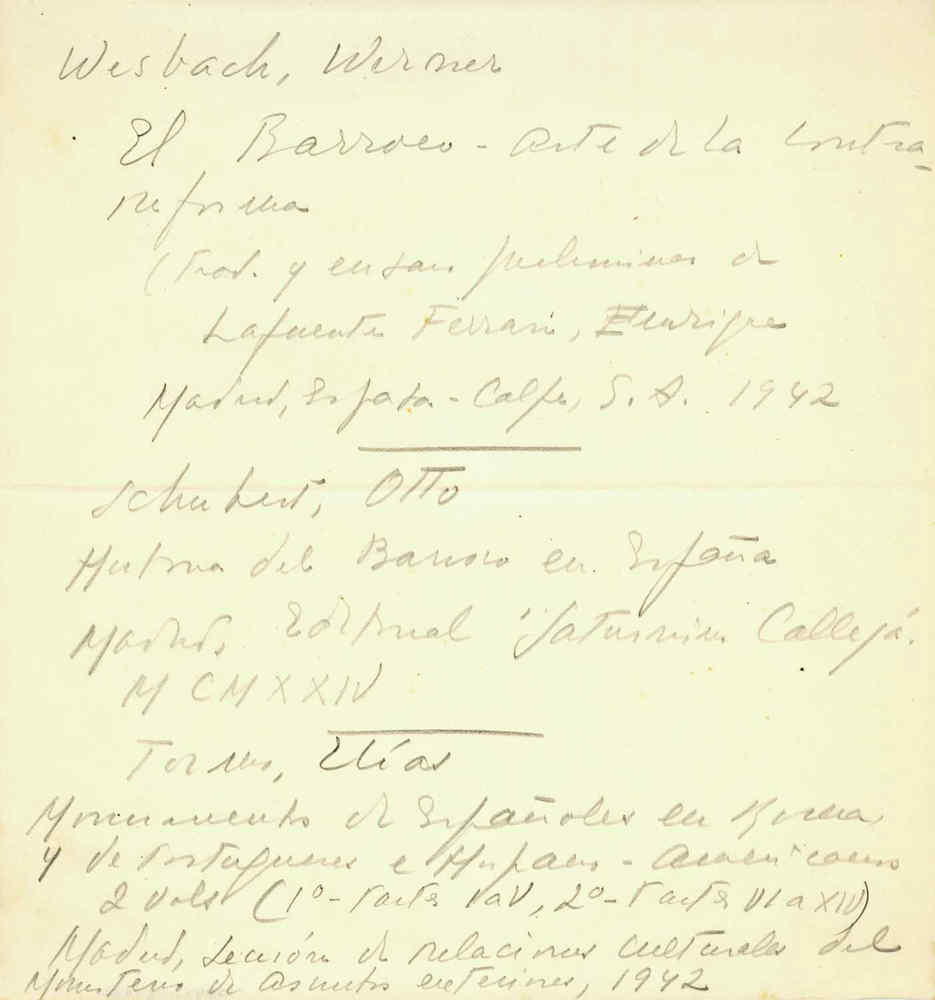 Wesbach, Werner
El Barroco - arte de la contra-
reforma
(Trad. y ensayo preliminar de
Lafuente Ferrari, Enrique
Madrid, Espasa - Calpe, S. A. 1942
Schubert, Otto
Historia del Barroco en España
Madrid, Editorial "Saturnino Calleja".
MCMXXIV
Tormo, Elías
Monumentos de Españoles en Roma
y de Portugueses e Hispano - americanos
2 vols (1º - Partes I a V, 2º - Partes VI a XIV)
Madrid, Sección de relaciones culturales del
Ministerio de asuntos exteriores, 1942